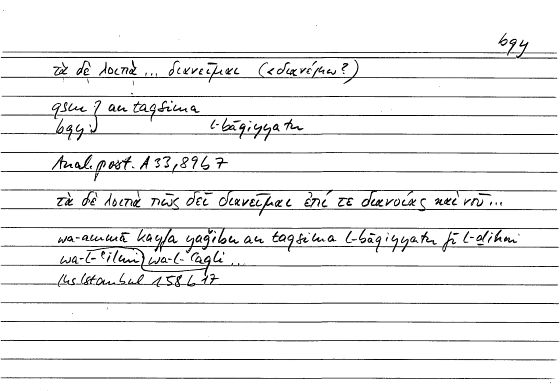 bqy
τὰ δὲ λοιπὰ ... διανεῖμαι (<διανέμω?)
qsm } an taqsima
bqy } l-bāqiyyatu
Anal. post. A 33, 89b7
τὰ δὲ λοιπὰ πῶς δεῖ διανεῖμαι ἐπί τε διανοίας καὶ νοῦ ...
wa-ammā kayfa yaǧibu an taqsima l-bāqiyyatu fī l-ḏihni
wa-l-ʿilmi wa-l-ʿaqli ...
Hs Istanbul 158b17